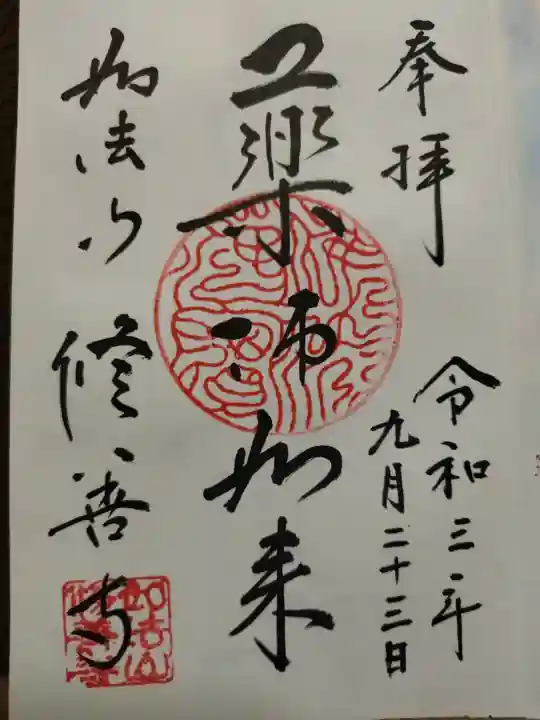 奉拝
令和三年
九月二十三日
薬師如来
如法山 修善寺